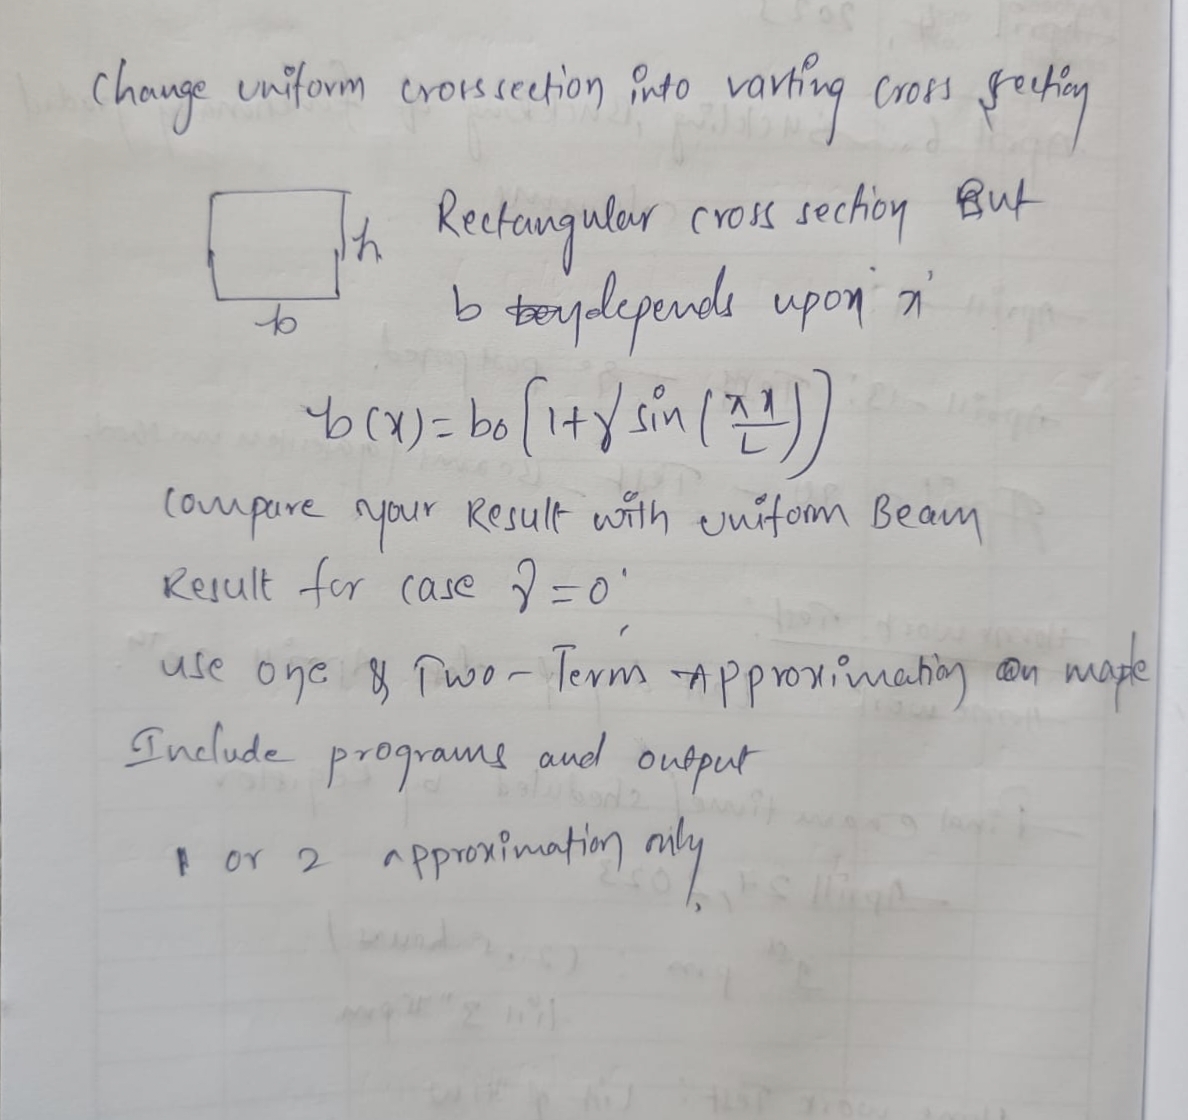 Change uniform cross section into varting cross section
h
Rectangular cross section But
b depends upon 'x'
b
b(x) = b0 [1+γ sin (πx/L)]
Compare your Result with uniform Beam
Result for case γ = 0'
use one & Two-Term Approximation on maple
Include programs and output
1 or 2 approximation only.